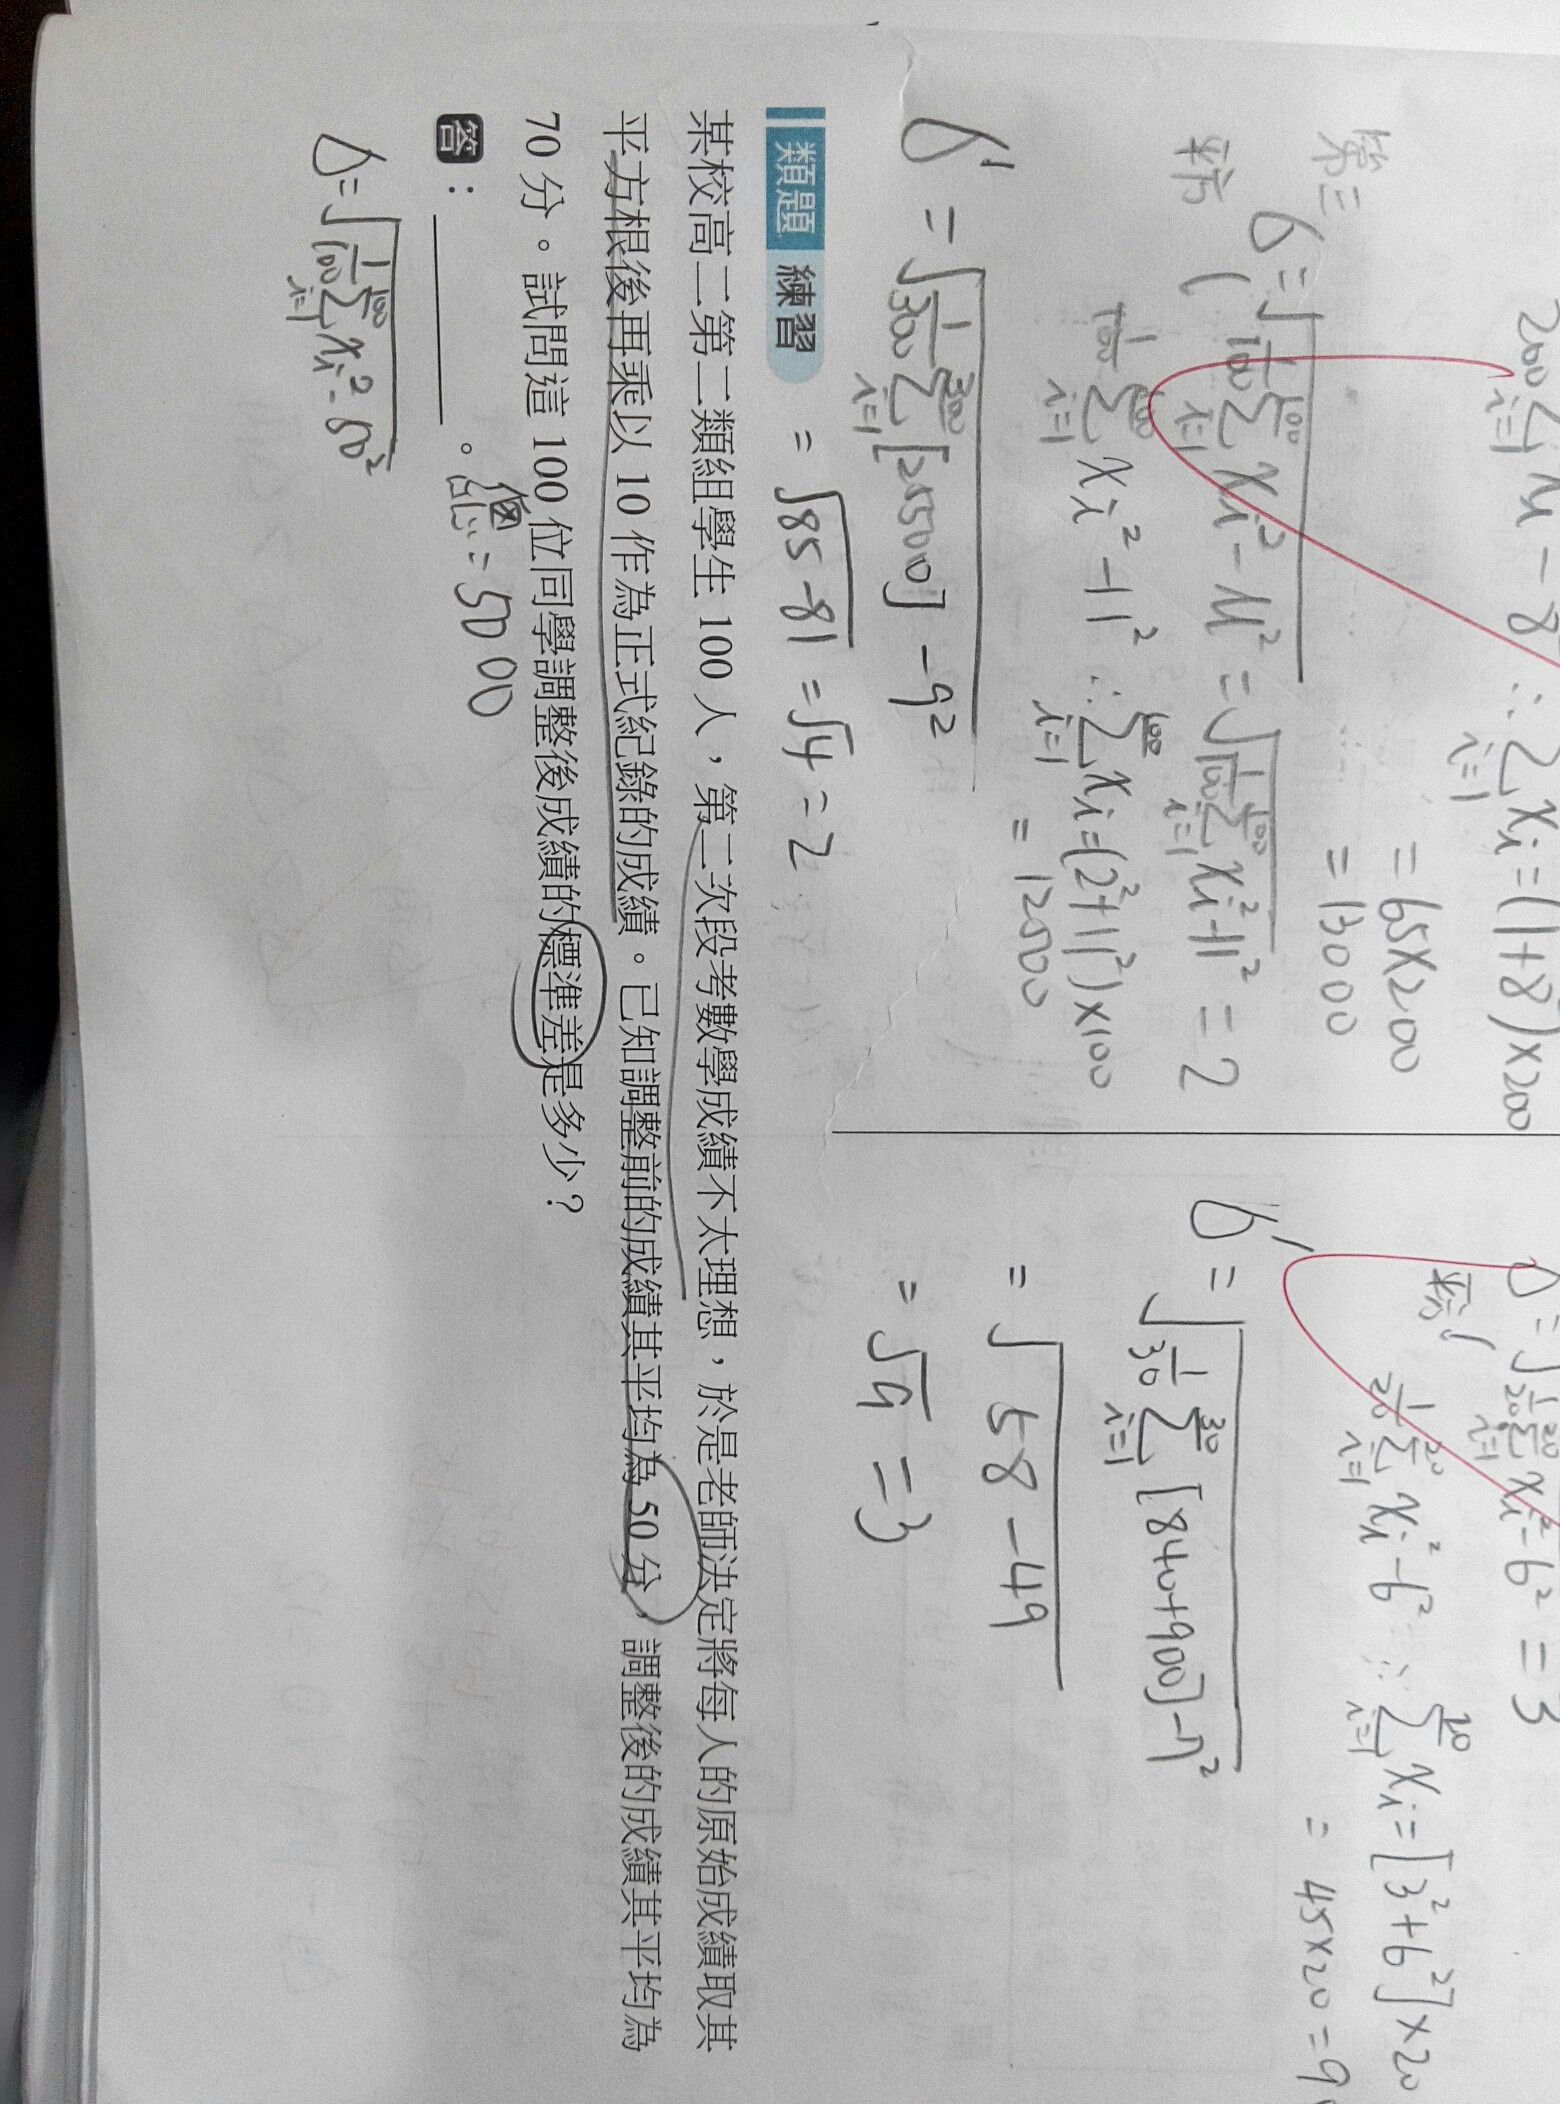 200 Σ i=1 xi - 8 ∴ Σ i=1 xi = (1+8)×200
= 65×200
= 13000
第三
σ = √(1/100 Σ i=1 100 xi² - μ² = √(1/100 Σ i=1 100 xi² - 11² = 2
平方(
1/100 Σ i=1 100 xi² - 11² ∴ Σ i=1 100 xi = (2²+11²)×100
= 12500
σ' = √(1/300 Σ i=1 300 [25500] - 9²
= √85-81 = √4 = 2
σ = √(1/20 Σ i=1 20 xi² - 6² = 3
平方(
1/20 Σ i=1 20 xi² - 6² ∴ Σ i=1 20 xi = [3²+6²]×20
= 45×20 = 90
σ' = √(1/30 Σ i=1 30 [840+900] - 7²
= √58-49
= √9 = 3
類題 練習
某校高二第二類組學生 100 人，第二次段考數學成績不太理想，於是老師決定將每人的原始成績取其
平方根後再乘以 10 作為正式紀錄的成績。已知調整前的成績其平均為 50 分，調整後的成績其平均為
70 分。試問這 100 位同學調整後成績的標準差是多少？
答：＿＿＿＿＿。
總 = 5000
σ = √(1/100 Σ i=1 100 xi² - 50²